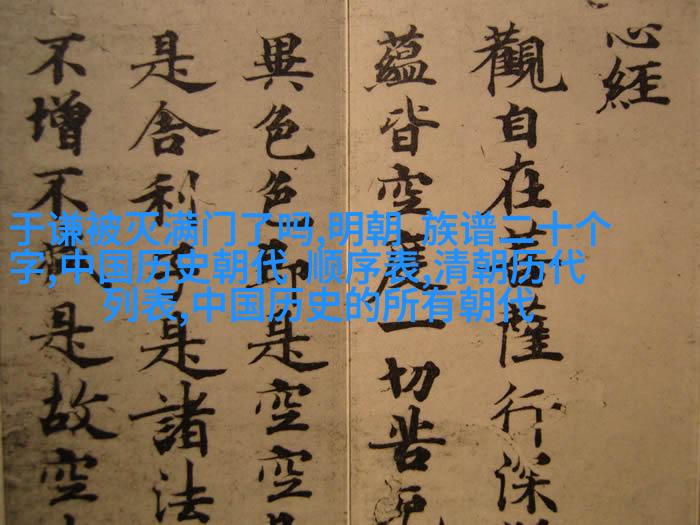 心經
觀自在菩薩行深
蘊皆空度一切苦厄
異色色即是空空
是舍利子是諸法
不增不減是故空
于谦被灭满门了吗,明朝 族谱二十个
字,中国历史朝代 顺序表,清朝历代
列表,中国历史的所有朝代